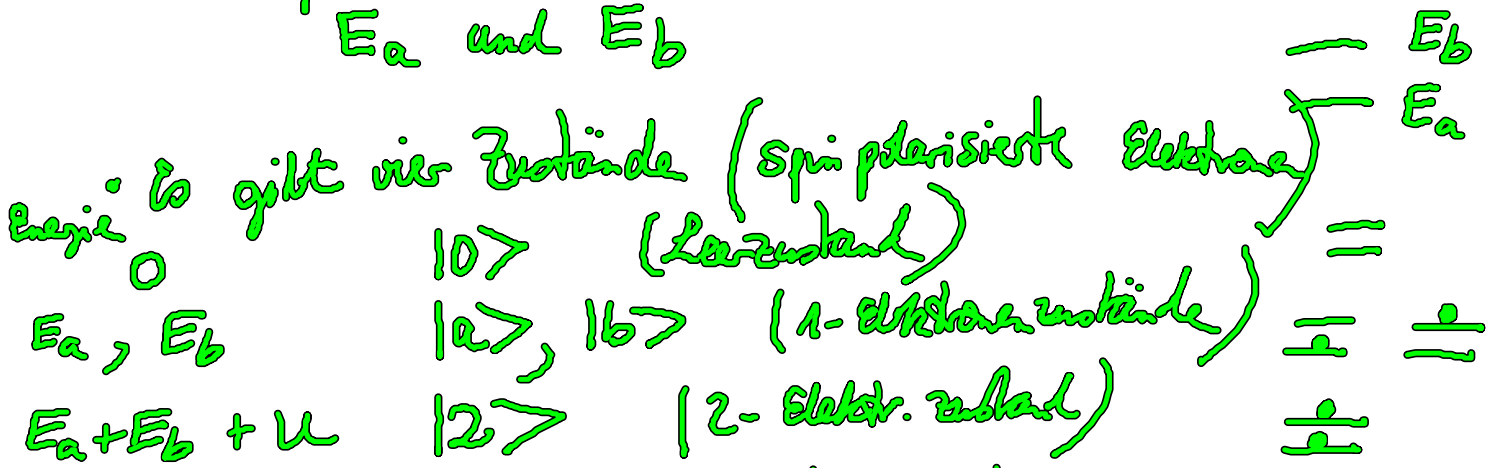 E_a und E_b — E_b
— E_a
• Es gibt vier Zustände (spinpolarisierte Elektronen)
Energie
0 |0> (Leerzustand)
E_a, E_b |a>, |b> (1-Elektronenzustände)
E_a+E_b+U |2> (2-Elektr. zustand)